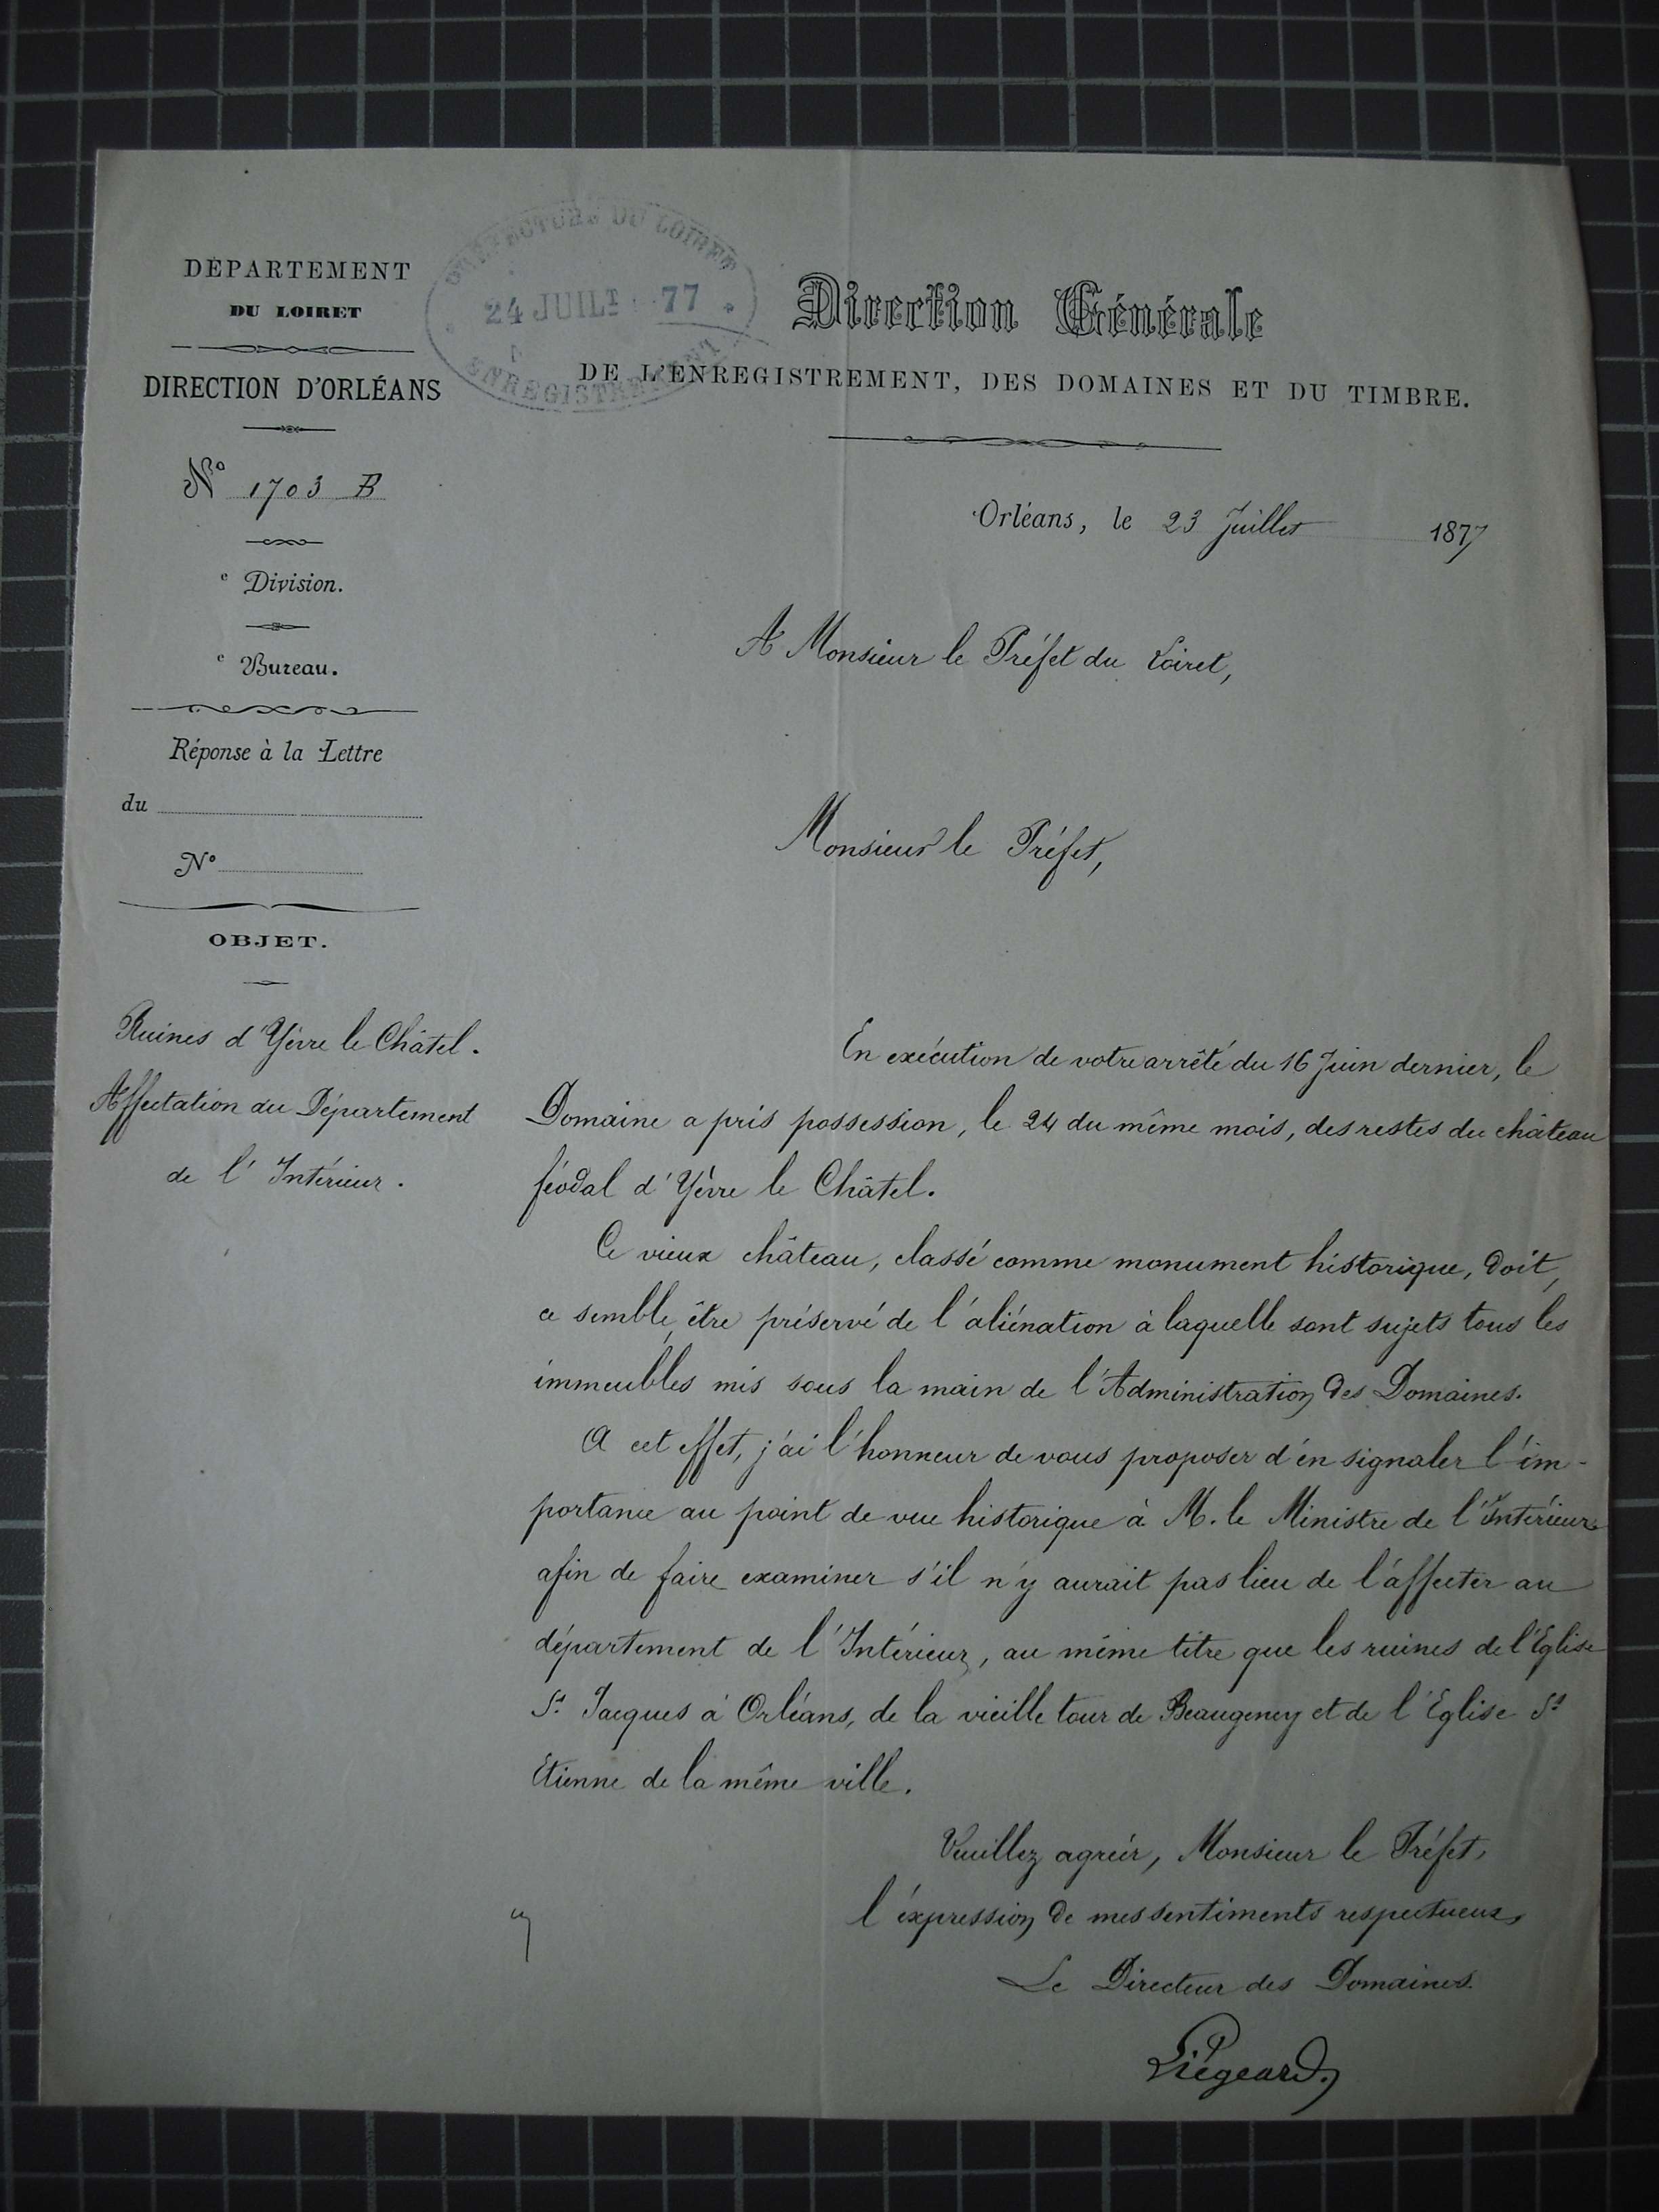 DÉPARTEMENT
DU LOIRET
DIRECTION D'ORLÉANS
N° 1703 B
e Division.
e Bureau.
Réponse à la Lettre
du
N°
OBJET.
Ruines d'Yèvre le Châtel.
Affectation au Département
de l'Intérieur.
PRÉFECTURE DU LOIRET
24 JUILT 77
ENREGISTREMENT
Direction Générale
DE L'ENREGISTREMENT, DES DOMAINES ET DU TIMBRE.
Orléans, le 23 Juillet 1877
A Monsieur le Préfet du Loiret,
Monsieur le Préfet,
En exécution de votre arrêté du 16 Juin dernier, le
Domaine a pris possession, le 24 du même mois, des restes du château
féodal d'Yèvre le Châtel.
Ce vieux château, classé comme monument historique, doit,
ce semble, être préservé de l'aliénation à laquelle sont sujets tous les
immeubles mis sous la main de l'Administration des Domaines.
A cet effet, j'ai l'honneur de vous proposer d'en signaler l'im-
portance au point de vue historique à M. le Ministre de l'Intérieur
afin de faire examiner s'il n'y aurait pas lieu de l'affecter au
département de l'Intérieur, au même titre que les ruines de l'Eglise
St Jacques à Orléans, de la vieille tour de Beaugency et de l'Eglise St
Etienne de la même ville.
Veuillez agréér, Monsieur le Préfet,
l'éxpression de mes sentiments respectueux,
Le Directeur des Domaines.
Liégeard